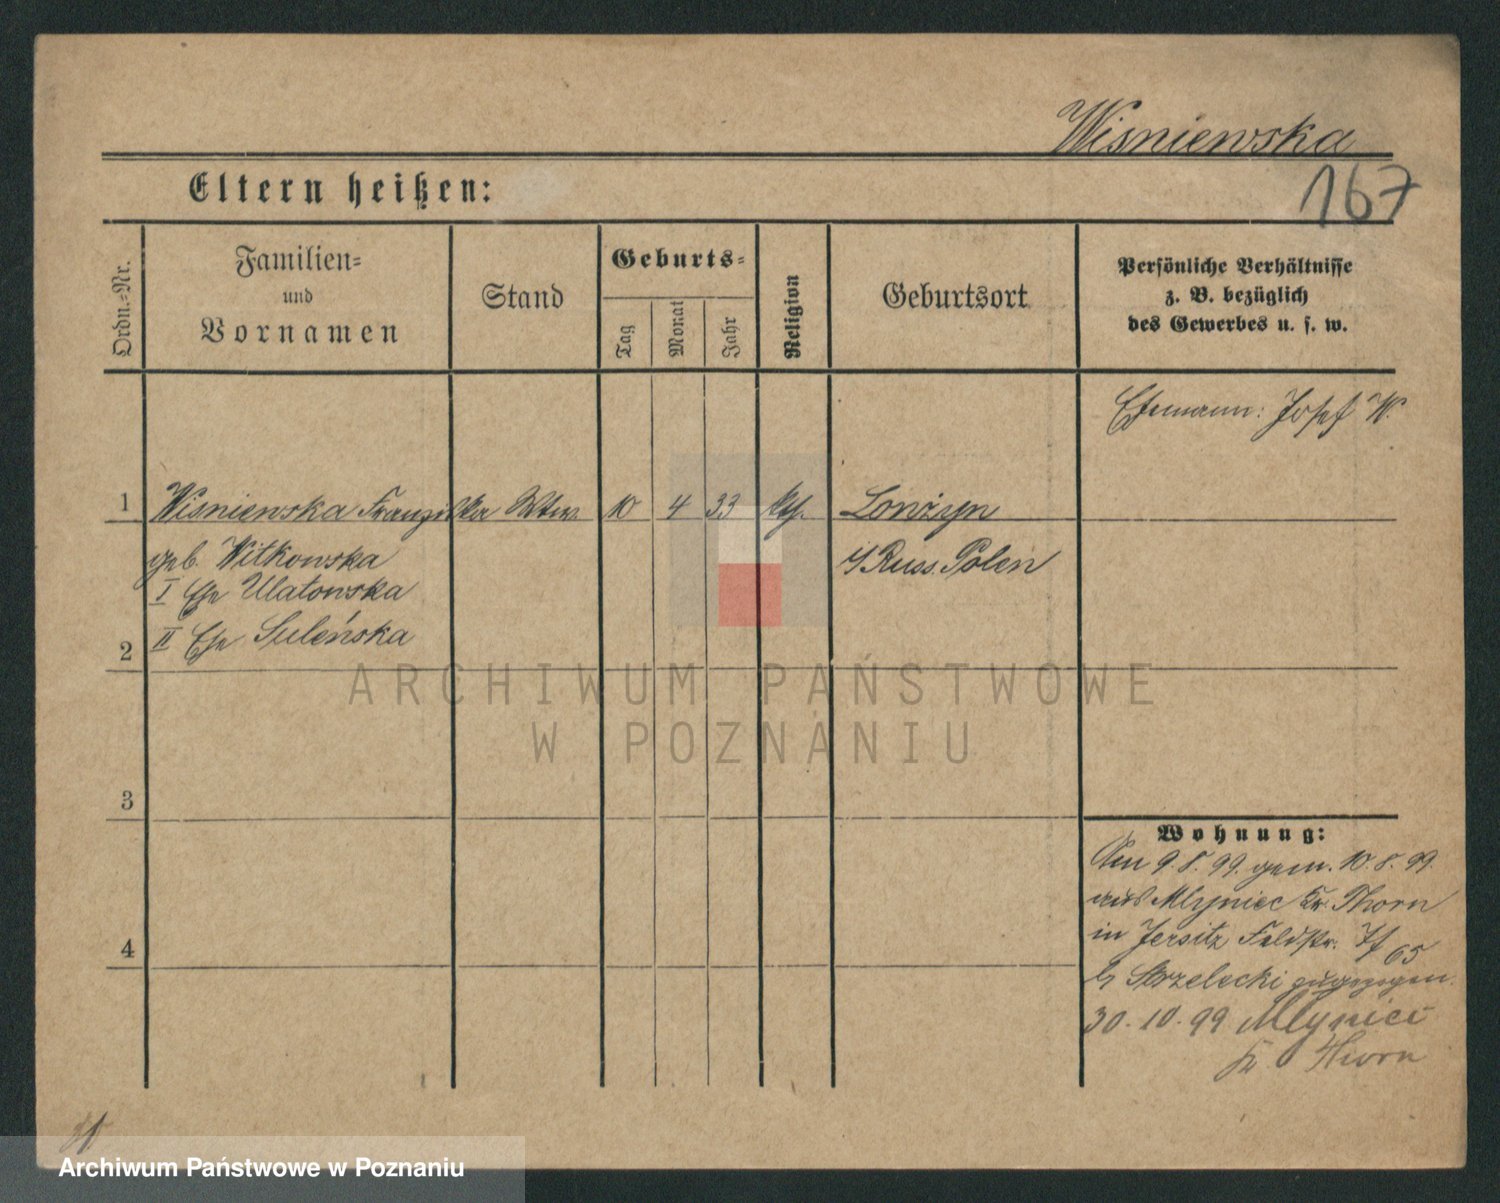 Wisniewska
167
Eltern heißen:
Ordn.=Nr.
Familien=
und
Vornamen
Stand
Geburts=
Tag
Monat
Jahr
Religion
Geburtsort
Persönliche Verhältnisse
z. B. bezüglich
des Gewerbes u. s. w.
Ehemann: Josef W.
1 Wisniewska Franziska Wtw. 10 4 33 kth.
geb. Witkowska
I Ehe Ulatowska
II Ehe Suleńska
Russ. Polen
2
3
4
Wohnung:
Am 9.8.99. gem. 10.8.99.
aus Mlyniec Kr. Thorn
in Jersitz Feldstr. 65
b/ Strzelecki zugezogen.
30.10.99 Mlyniec
Kr Thorn
ARCHIWUM PAŃSTWOWE
W POZNANIU
Archiwum Państwowe w Poznaniu